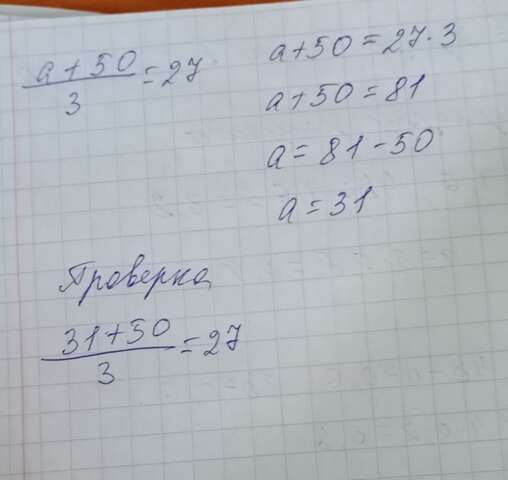 a + 50
3
= 27
a + 50 = 27 · 3
a + 50 = 81
a = 81 - 50
a = 31
Проверка
31 + 50
3
= 27